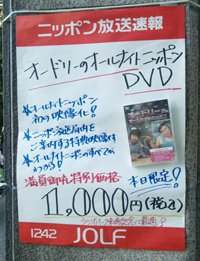 ニッポン放送速報
オードリーのオールナイトニッポン
DVD
*オールナイトニッポン
初の映像化!
*ニッポン放送局内を
ご案内する特典映像付
*オールナイトニッポンのすべてが
わかる!
オードリー
満員御礼特別価格
本日限定!
11,000円(税込)
1242 JOLF